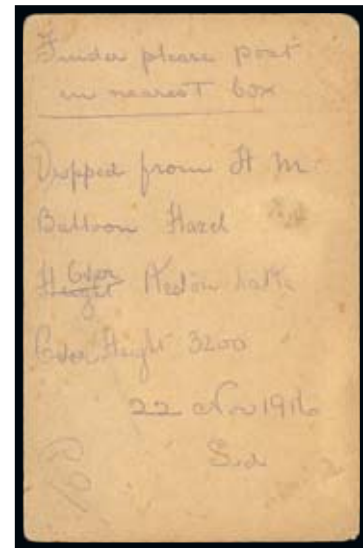 Finder please post
in nearest box
Dropped from H M
Balloon Hazel
Over
Height 3200
22 Nov 1916
Sid